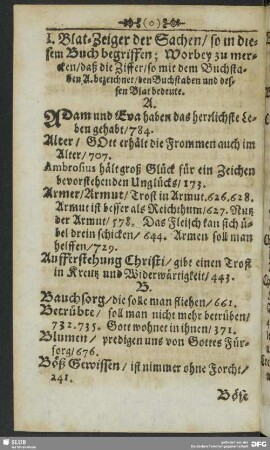 (o)
I. Blat-Zeiger der Sachen/ so in die-
sem Buch begriffen; Worbey zu mer-
cken/daß die Ziffer/so mit dem Buchsta-
ben A. bezeichnet/den Buchstaben und des-
sen Blat bedeute.
A.
ADam und Eva haben das herrlichste Le-
ben gehabt/784.
Alter/ GOtt erhält die Frommen auch im
Alter/707.
Ambrosius hält groß Glück für ein Zeichen
bevorstehenden Unglücks/173.
Armer/Armut/ Trost in Armut.626.628.
Armut ist besser als Reichthum/627. Nutz
der Armut/578. Das Fleisch kan sich ü-
bel drein schicken/ 644. Armen soll man
helffen/729.
Aufferstehung Christi/ gibt einen Trost
in Kreutz und Widerwärtigkeit/443.
B.
Bauchsorg/die solle man fliehen/661.
Betrübte/ soll man nicht mehr betrüben/
732.735. Gott wohnet in ihnen/371.
Blumen/ predigen uns von Gottes Für-
sorg/676.
Böß Gewissen/ ist nimmer ohne Forcht/
241.
Böse
SLUB